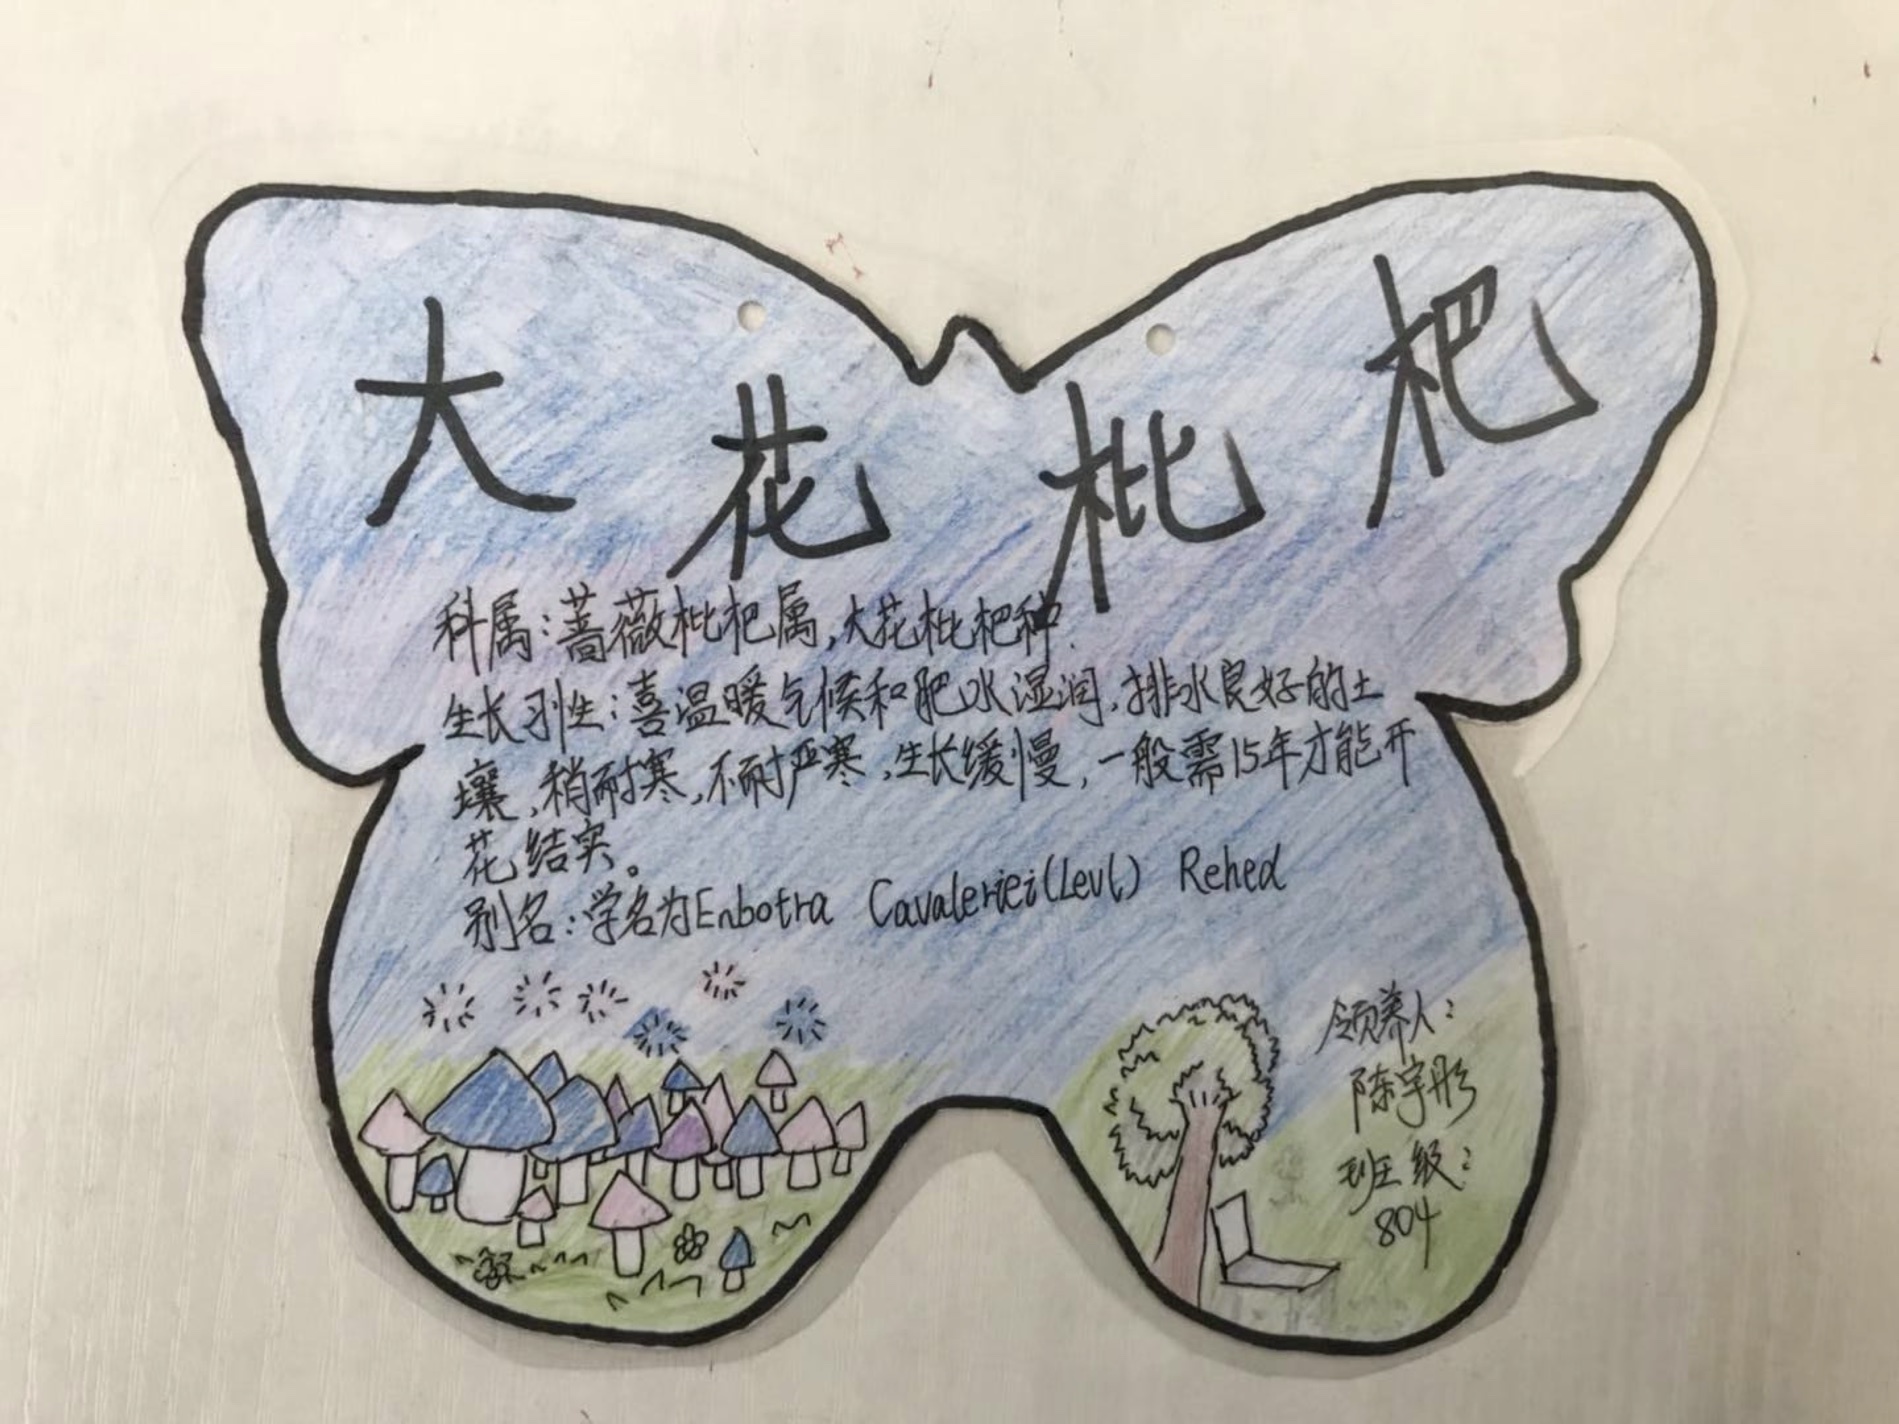 大花枇杷
科属：蔷薇枇杷属，大花枇杷种.
生长习性：喜温暖气候和肥水湿润，排水良好的土
壤，稍耐寒，不耐严寒，生长缓慢，一般需15年才能开
花结实。
别名：学名为Enbotra Cavaleriei(Levl) Rehed
领养人：
陈宇彤
班级：
804